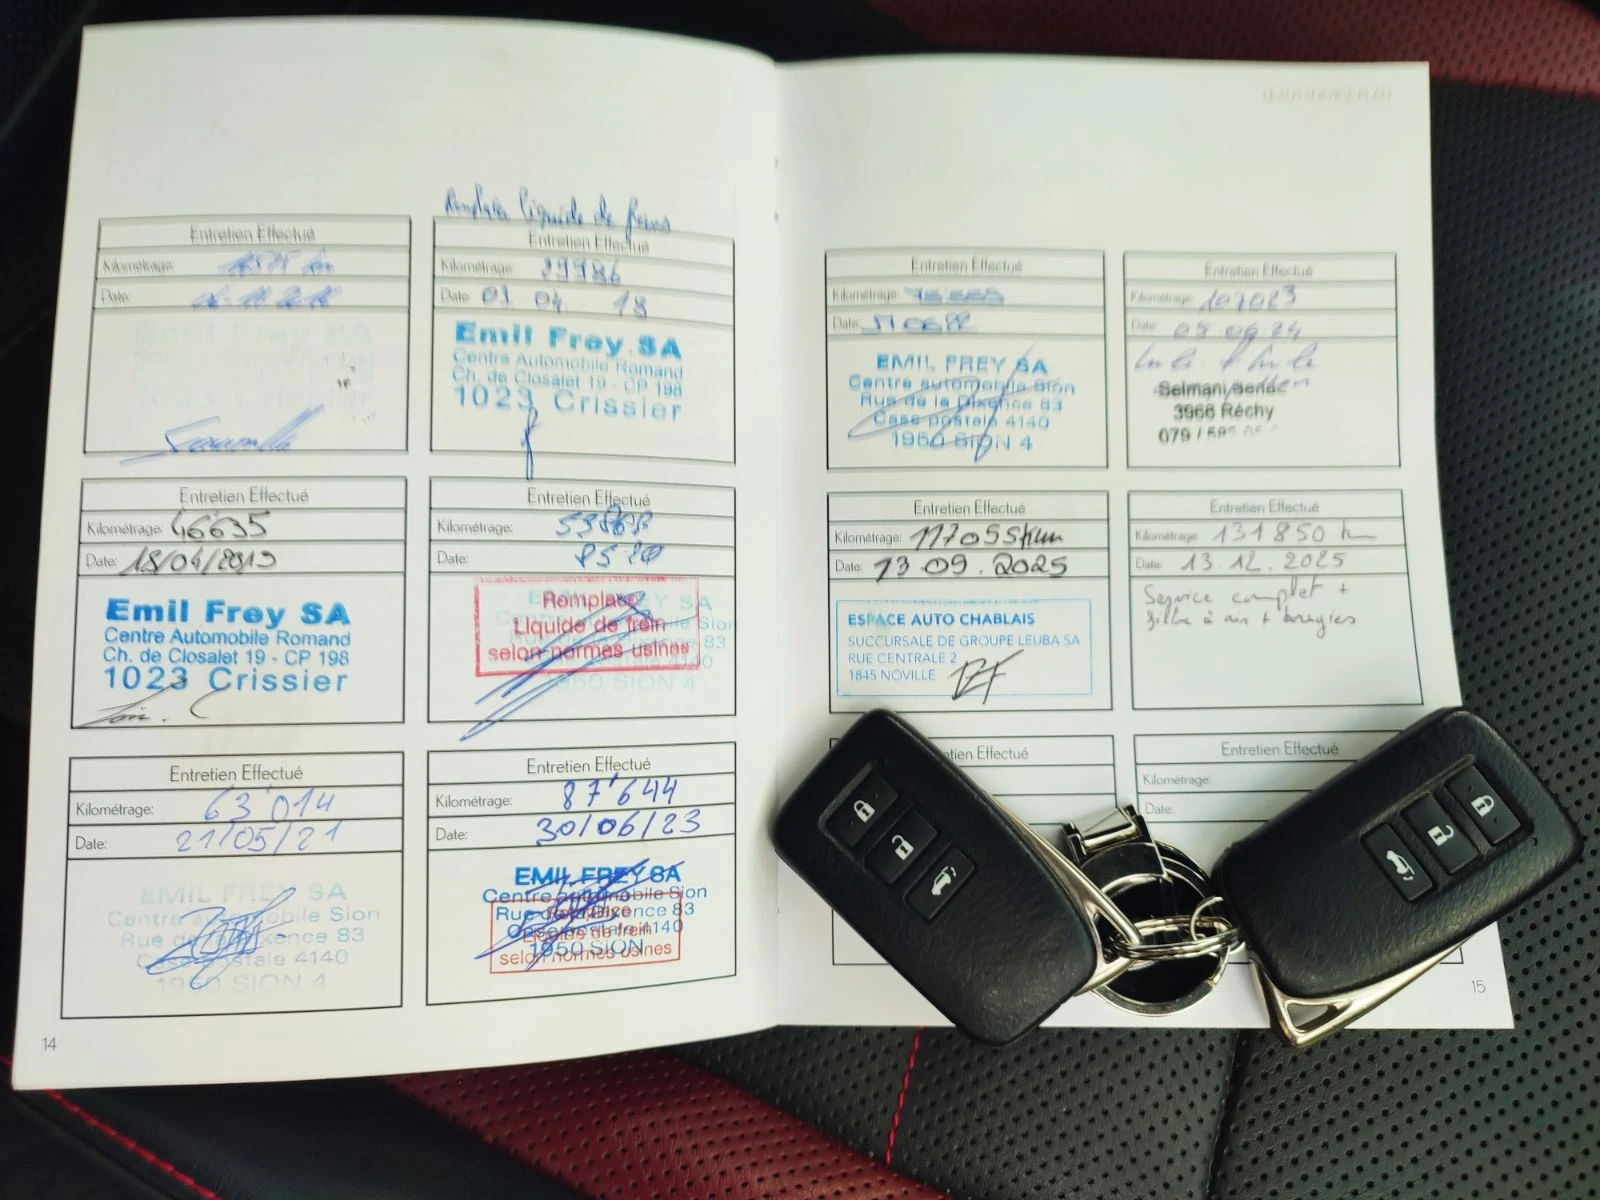 liquide de freins
Entretien Effectué
Kilométrage:
Date:
Emil Frey SA
Centre Automobile Romand
1023 Crissier
Entretien Effectué
Kilométrage: 29986
Date: 03. 04. 18
Emil Frey SA
Centre Automobile Romand
Ch. de Closalet 19 - CP 198
1023 Crissier
Entretien Effectué
Kilométrage: 46635
Date: 18/04/2019
Emil Frey SA
Centre Automobile Romand
Ch. de Closalet 19 - CP 198
1023 Crissier
Entretien Effectué
Kilométrage:
Date:
Remplacé
Liquide de frein
selon normes usines
1950 SION 4
Entretien Effectué
Kilométrage: 63'014
Date: 21/05/21
EMIL FREY SA
Centre automobile Sion
Rue de la Dixence 83
Case postale 4140
1950 SION 4
Entretien Effectué
Kilométrage: 87'644
Date: 30/06/23
EMIL FREY SA
Centre automobile Sion
Rue de la Dixence 83
Case postale 4140
1950 SION
Remplacé
Liquide de frein
selon normes usines
14
LEXUS SERVICE PLAN
Entretien Effectué
Kilométrage:
Date:
EMIL FREY SA
Centre automobile Sion
Rue de la Dixence 83
Case postale 4140
1950 SION 4
Entretien Effectué
Kilométrage: 107023
Date: 05.06.24
3966 Réchy
Entretien Effectué
Kilométrage: 117055km
Date: 13.09.2025
ESPACE AUTO CHABLAIS
SUCCURSALE DE GROUPE LEUBA SA
RUE CENTRALE 2
1845 NOVILLE
Entretien Effectué
Kilométrage: 131850
Date: 13.12.2025
Service complet +
filtre à air + bougies
Entretien Effectué
Entretien Effectué
Kilométrage:
Date:
15